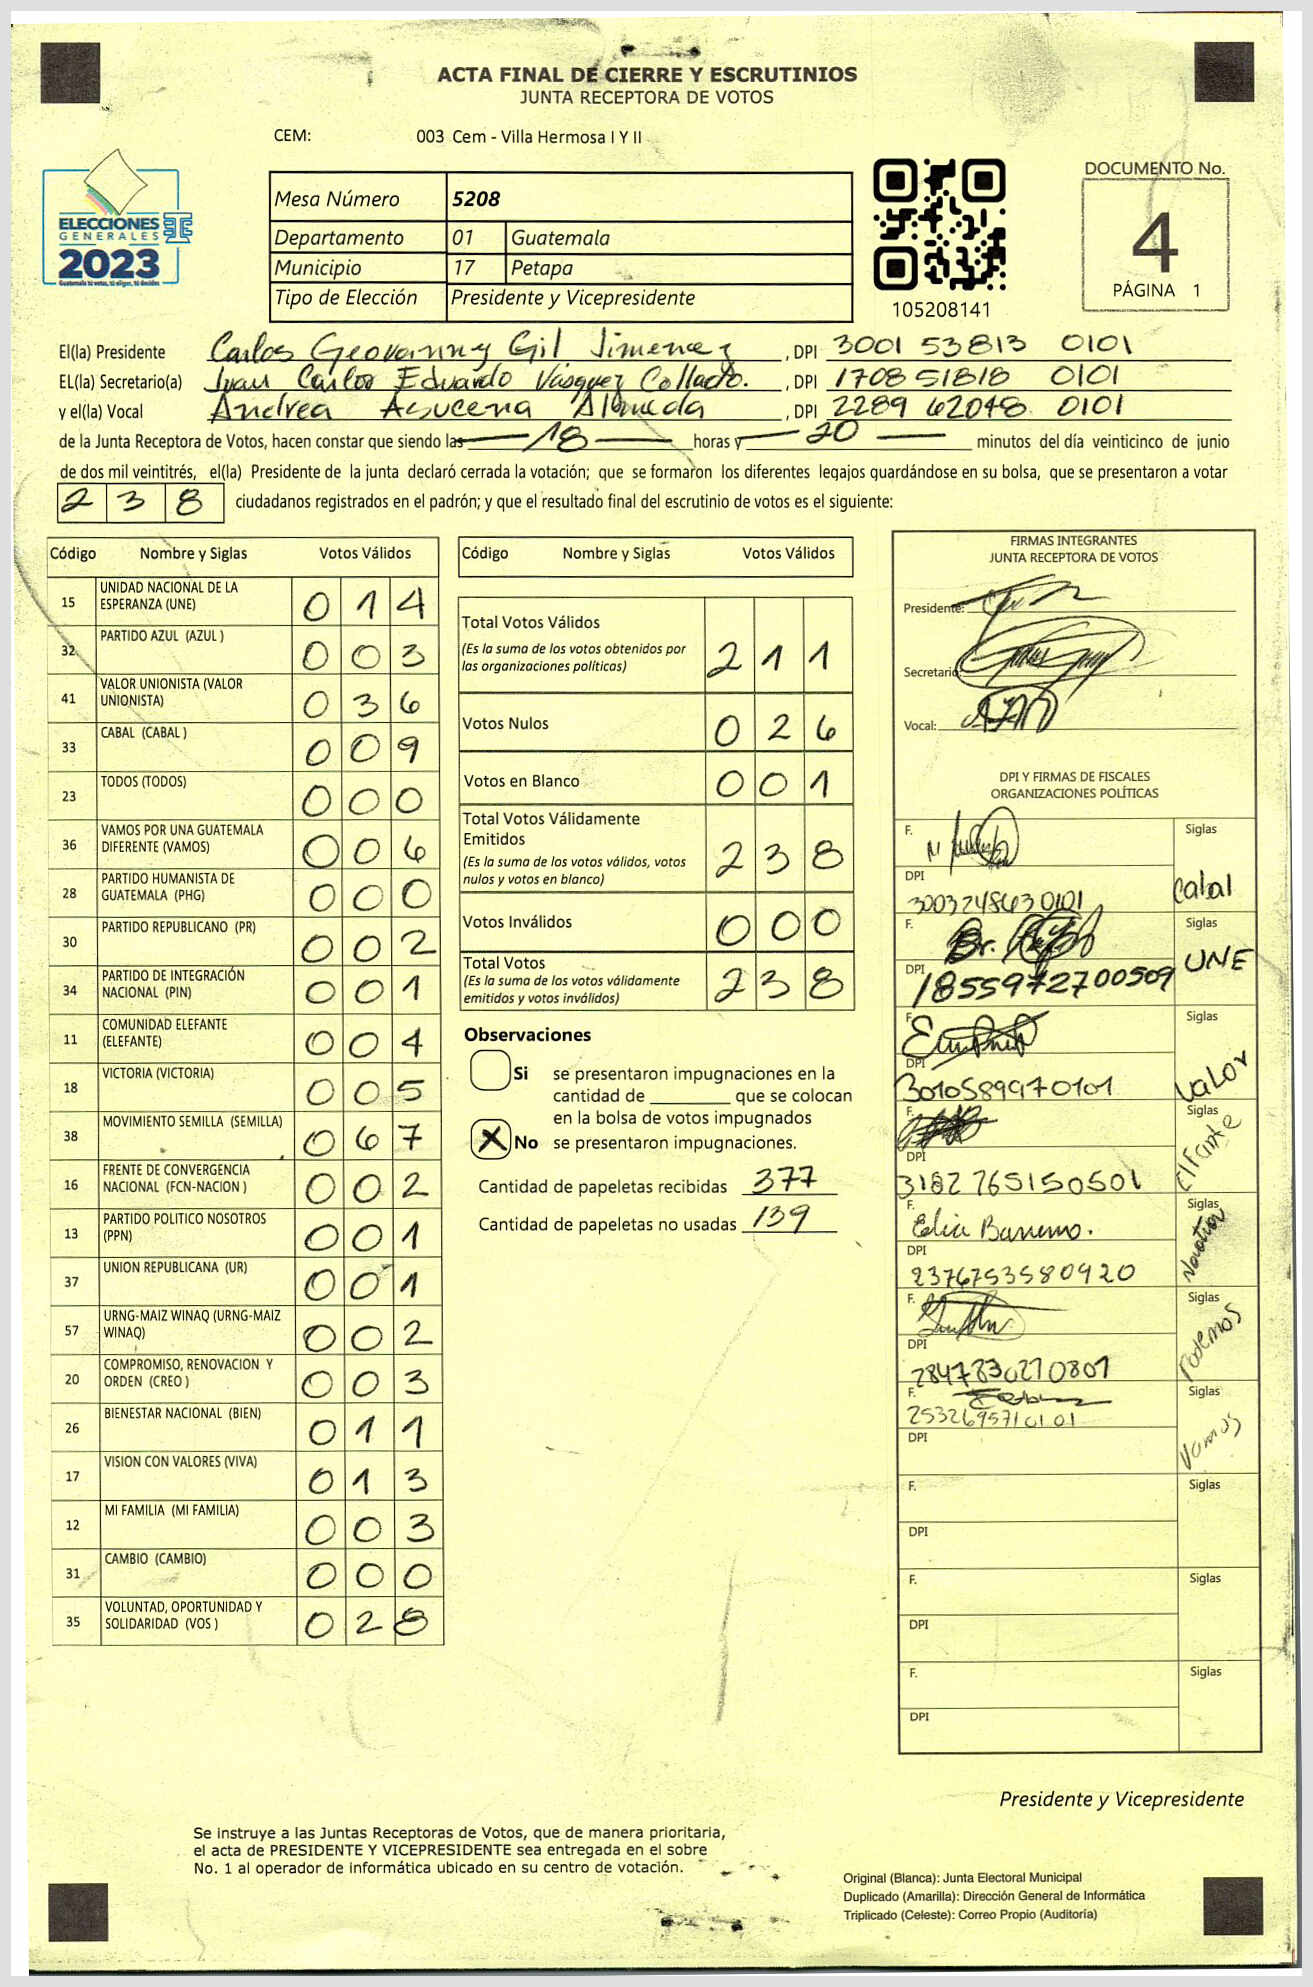 ACTA FINAL DE CIERRE Y ESCRUTINIOS
JUNTA RECEPTORA DE VOTOS
CEM: 003 Cem - Villa Hermosa I Y II
ELECCIONES
GENERALES
2023
Guatemala tú votas, tú eliges, tú decides
Mesa Número 5208
Departamento 01 Guatemala
Municipio 17 Petapa
Tipo de Elección Presidente y Vicepresidente
105208141
DOCUMENTO No.
4
PÁGINA 1
El(la) Presidente Carlos Geovanny Gil Jimenez, DPI 3001 53813 0101
EL(la) Secretario(a) Juan Carlos Eduardo Vásquez Collado., DPI 1708 51818 0101
y el(la) Vocal Andrea Asucena Alameda, DPI 2289 62048 0101
de la Junta Receptora de Votos, hacen constar que siendo las 18 horas y 20 minutos del día veinticinco de junio
de dos mil veintitrés, el(la) Presidente de la junta declaró cerrada la votación; que se formaron los diferentes legajos guardándose en su bolsa, que se presentaron a votar
238 ciudadanos registrados en el padrón; y que el resultado final del escrutinio de votos es el siguiente:
Código Nombre y Siglas Votos Válidos
15 UNIDAD NACIONAL DE LA ESPERANZA (UNE) 014
32 PARTIDO AZUL (AZUL ) 003
41 VALOR UNIONISTA (VALOR UNIONISTA) 036
33 CABAL (CABAL ) 009
23 TODOS (TODOS) 000
36 VAMOS POR UNA GUATEMALA DIFERENTE (VAMOS) 006
28 PARTIDO HUMANISTA DE GUATEMALA (PHG) 000
30 PARTIDO REPUBLICANO (PR) 002
34 PARTIDO DE INTEGRACIÓN NACIONAL (PIN) 001
11 COMUNIDAD ELEFANTE (ELEFANTE) 004
18 VICTORIA (VICTORIA) 005
38 MOVIMIENTO SEMILLA (SEMILLA) 067
16 FRENTE DE CONVERGENCIA NACIONAL (FCN-NACION ) 002
13 PARTIDO POLITICO NOSOTROS (PPN) 001
37 UNION REPUBLICANA (UR) 001
57 URNG-MAIZ WINAQ (URNG-MAIZ WINAQ) 002
20 COMPROMISO, RENOVACION Y ORDEN (CREO ) 003
26 BIENESTAR NACIONAL (BIEN) 011
17 VISION CON VALORES (VIVA) 013
12 MI FAMILIA (MI FAMILIA) 003
31 CAMBIO (CAMBIO) 000
35 VOLUNTAD, OPORTUNIDAD Y SOLIDARIDAD (VOS ) 028
Código Nombre y Siglas Votos Válidos
Total Votos Válidos 211
(Es la suma de los votos obtenidos por
las organizaciones políticas)
Votos Nulos 026
Votos en Blanco 001
Total Votos Válidamente
Emitidos 238
(Es la suma de los votos válidos, votos
nulos y votos en blanco)
Votos Inválidos 000
Total Votos 238
(Es la suma de los votos válidamente
emitidos y votos inválidos)
Observaciones
Si se presentaron impugnaciones en la
cantidad de ________ que se colocan
en la bolsa de votos impugnados
X No se presentaron impugnaciones.
Cantidad de papeletas recibidas 377
Cantidad de papeletas no usadas 139
FIRMAS INTEGRANTES
JUNTA RECEPTORA DE VOTOS
Presidente:
Secretario:
Vocal:
DPI Y FIRMAS DE FISCALES
ORGANIZACIONES POLÍTICAS
F. Siglas
DPI 3003248630101 Cabal
F. Siglas
DPI 1855972700509 UNE
F. Siglas
DPI 3010589970101 VALOR
F. Siglas
DPI 3182 765150501 Elfante
F. Edia Barreno. Siglas
DPI 2376753580920 Nosotros
F. Siglas
DPI 2847830270801 Podemos
F. Siglas
2532695710101 Vamos
DPI
F. Siglas
DPI
F. Siglas
DPI
F. Siglas
DPI
Presidente y Vicepresidente
Se instruye a las Juntas Receptoras de Votos, que de manera prioritaria,
el acta de PRESIDENTE Y VICEPRESIDENTE sea entregada en el sobre
No. 1 al operador de informática ubicado en su centro de votación.
Original (Blanca): Junta Electoral Municipal
Duplicado (Amarilla): Dirección General de Informática
Triplicado (Celeste): Correo Propio (Auditoría)